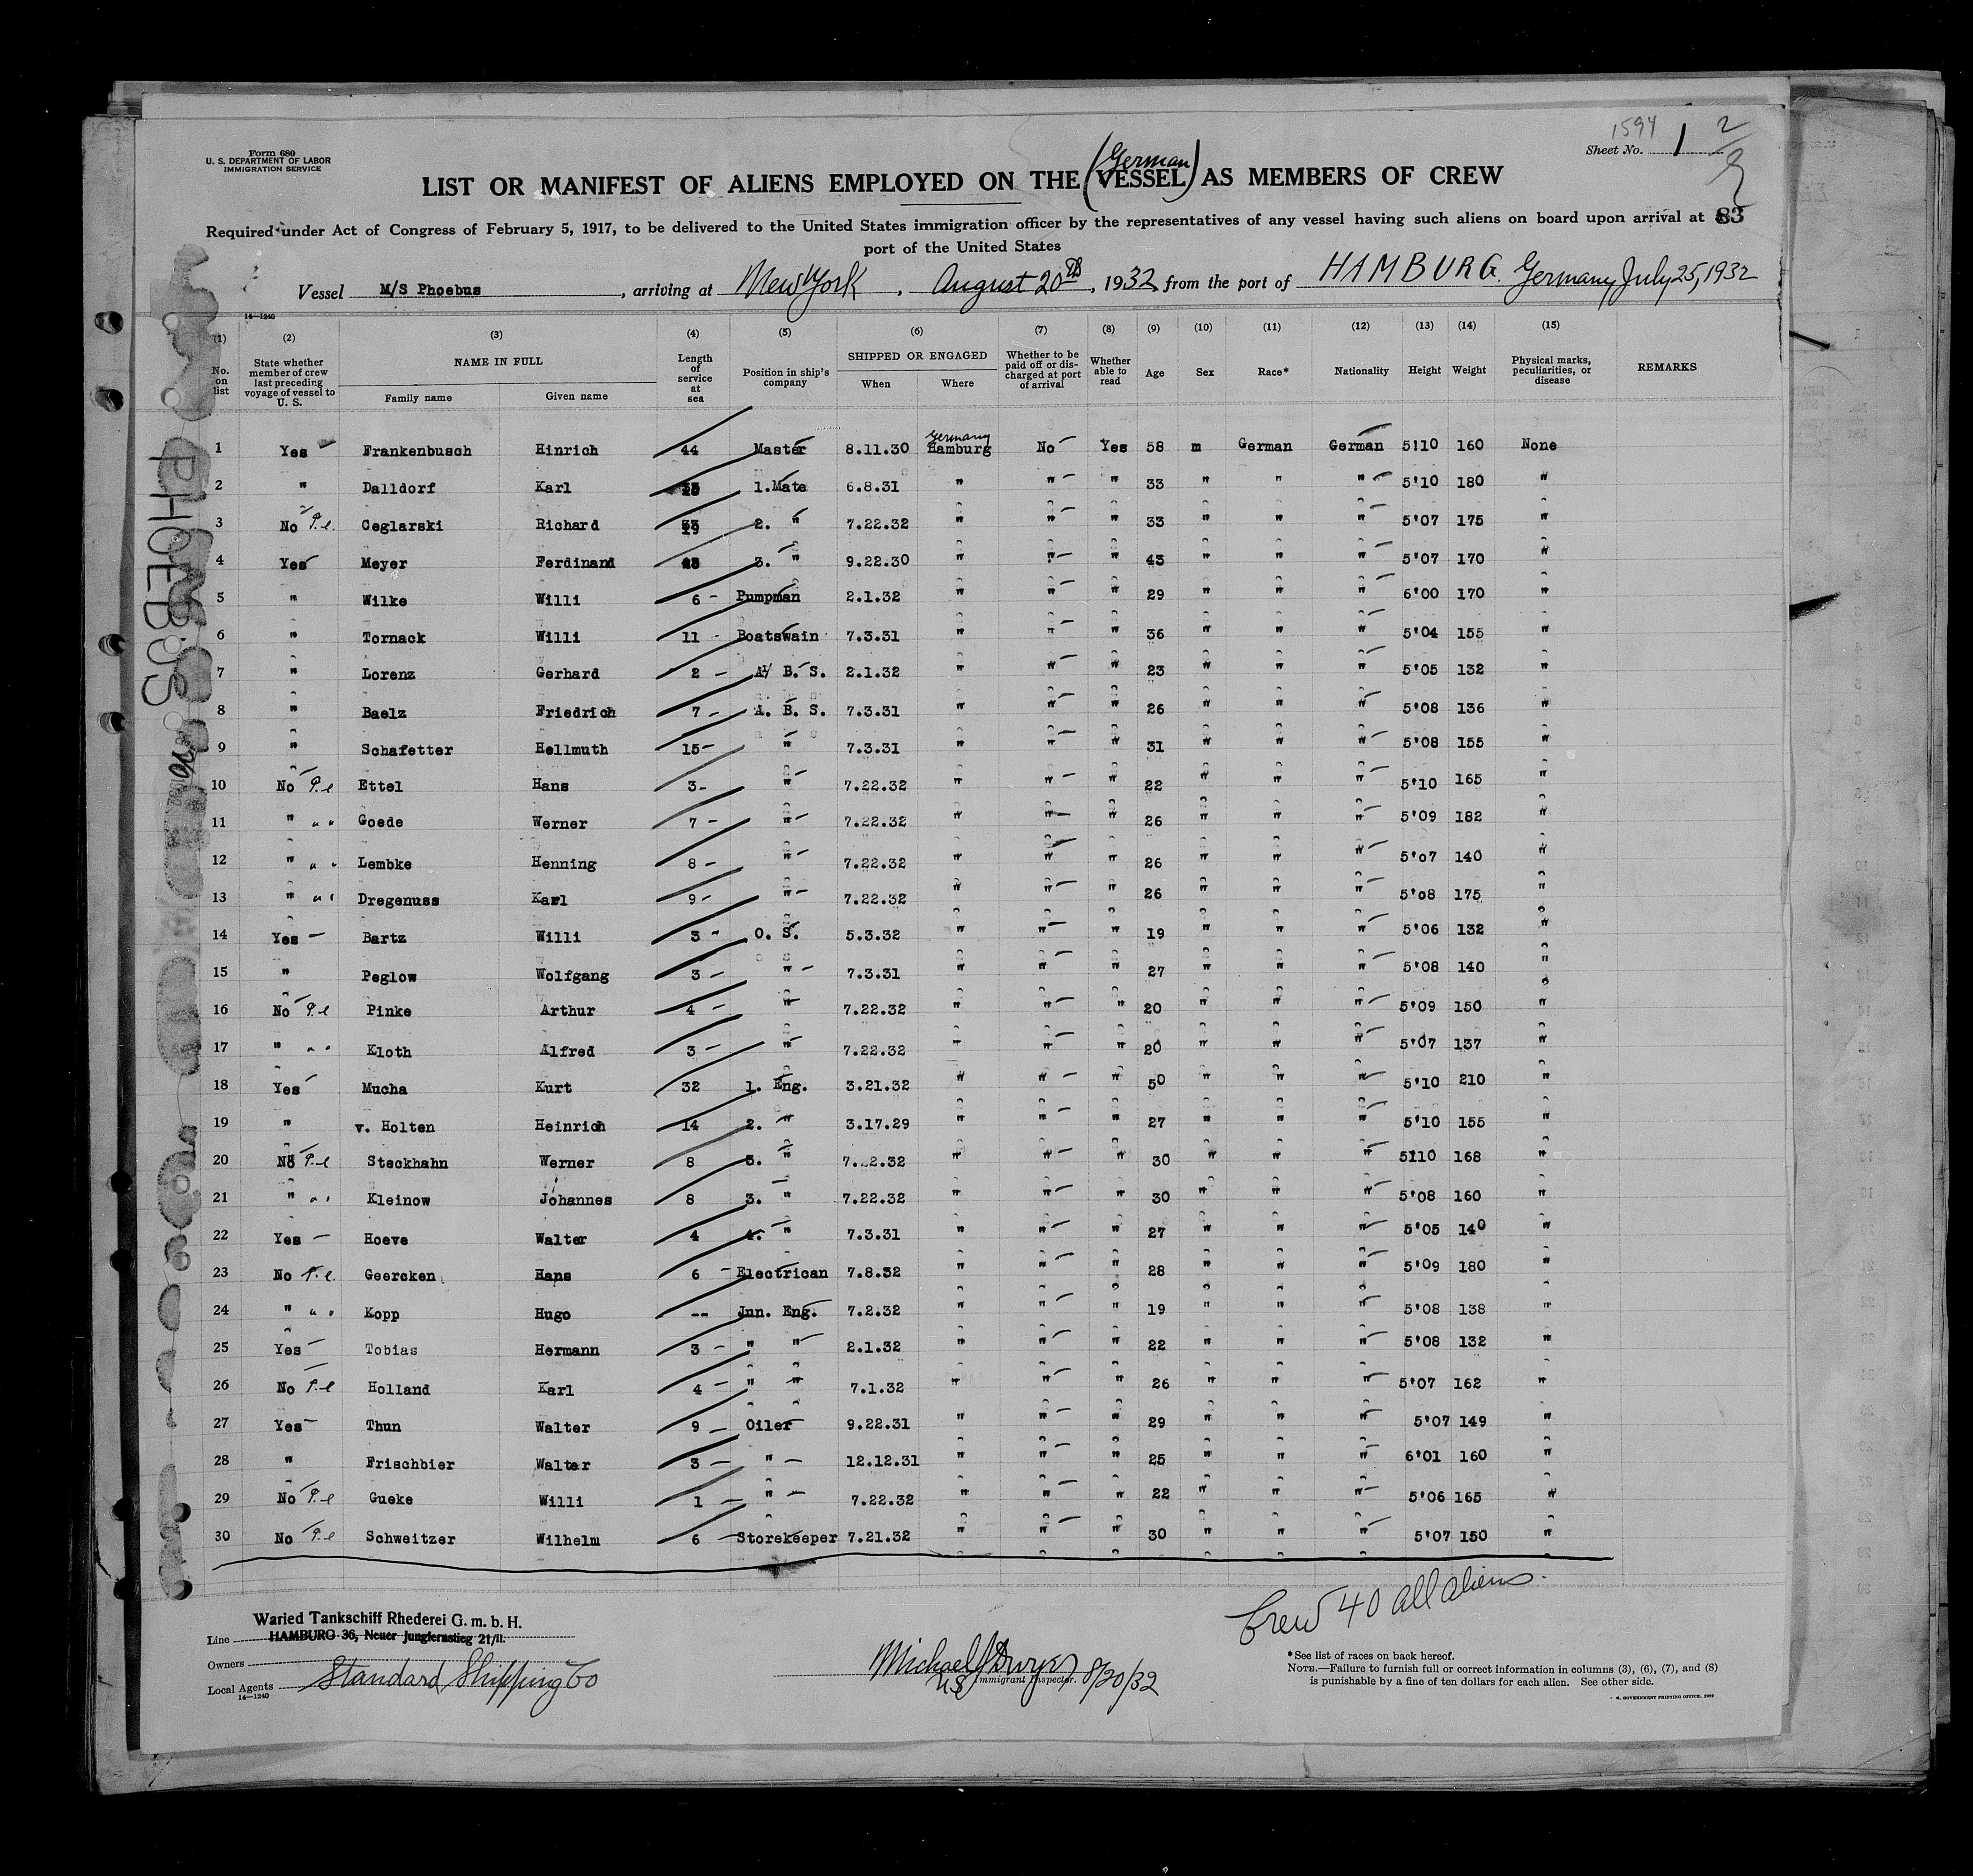 Form 680
U. S. DEPARTMENT OF LABOR
IMMIGRATION SERVICE
1594
Sheet No. 1
2
(German)
LIST OR MANIFEST OF ALIENS EMPLOYED ON THE (VESSEL) AS MEMBERS OF CREW
83
Required under Act of Congress of February 5, 1917, to be delivered to the United States immigration officer by the representatives of any vessel having such aliens on board upon arrival at
port of the United States
Vessel M/S Phoebus, arriving at New York, August 20th, 1932, from the port of HAMBURG. Germany July 25, 1932
14—1240
(1) (2) (3) (4) (5) (6) (7) (8) (9) (10) (11) (12) (13) (14) (15)
No. on list | State whether member of crew last preceding voyage of vessel to U. S. | NAME IN FULL | Family name | Given name | Length of service at sea | Position in ship's company | SHIPPED OR ENGAGED | When | Where | Whether to be paid off or discharged at port of arrival | Whether able to read | Age | Sex | Race* | Nationality | Height | Weight | Physical marks, peculiarities, or disease | REMARKS
Germany
1 Yes Frankenbusch Hinrich 44 Master 8.11.30 Hamburg No Yes 58 m German German 5'10 160 None
2 " Dalldorf Karl 1.Mate 6.8.31 " " " 33 " " " 5'10 180 "
3 No P.l. Ceglarski Richard 19 2. " 7.22.32 " " " 33 " " " 5'07 175 "
4 Yes Meyer Ferdinand 3. " 9.22.30 " " " 43 " " " 5'07 170 "
5 " Wilke Willi 6 Pumpman 2.1.32 " " " 29 " " " 6'00 170 "
6 " Tornack Willi 11 Boatswain 7.3.31 " " " 36 " " " 5'04 155 "
7 " Lorenz Gerhard 2 A/ B. S. 2.1.32 " " " 23 " " " 5'05 132 "
8 " Baelz Friedrich 7 A. B. S. 7.3.31 " " " 26 " " " 5'08 136 "
9 " Schafetter Hellmuth 15 " 7.3.31 " " " 31 " " " 5'08 155 "
10 No P.l Ettel Hans 3 " 7.22.32 " " " 22 " " " 5'10 165 "
11 " " " Goede Werner 7 " 7.22.32 " " " 26 " " " 5'09 182 "
12 " " " Lembke Henning 8 " 7.22.32 " " " 26 " " " 5'07 140 "
13 " " " Dregenuss Karl 9 " 7.22.32 " " " 26 " " " 5'08 175 "
14 Yes Bartz Willi 3 O. S. 5.3.32 " " " 19 " " " 5'06 132 "
15 " Peglow Wolfgang 3 " 7.3.31 " " " 27 " " " 5'08 140 "
16 No P.l Pinke Arthur 4 " 7.22.32 " " " 20 " " " 5'09 150 "
17 " " " Kloth Alfred 3 " 7.22.32 " " " 20 " " " 5'07 137 "
18 Yes Mucha Kurt 32 1. Eng. 3.21.32 " " " 50 " " " 5'10 210 "
19 " v. Holten Heinrich 14 2. " 3.17.29 " " " 27 " " " 5'10 155 "
20 No P.l Steckhahn Werner 8 3. " 7.22.32 " " " 30 " " " 5'10 168 "
21 " " " Kleinow Johannes 8 3. " 7.22.32 " " " 30 " " " 5'08 160 "
22 Yes Hoeve Walter 4 4. " 7.3.31 " " " 27 " " " 5'05 140 "
23 No P.l. Geercken Hans 6 Electrican 7.8.32 " " " 28 " " " 5'09 180 "
24 " " " Kopp Hugo -- Jnn. Eng. 7.2.32 " " " 19 " " " 5'08 138 "
25 Yes Tobias Hermann 3 " " 2.1.32 " " " 22 " " " 5'08 132 "
26 No P.l Holland Karl 4 " " 7.1.32 " " " 26 " " " 5'07 162 "
27 Yes Thun Walter 9 Oiler 9.22.31 " " " 29 " " " 5'07 149 "
28 " Frischbier Walter 3 " 12.12.31 " " " 25 " " " 6'01 160 "
29 No P.l Gueke Willi 1 " 7.22.32 " " " 22 " " " 5'06 165 "
30 No P.l Schweitzer Wilhelm 6 Storekeeper 7.21.32 " " " 30 " " " 5'07 150 "
PHOEBUS
Crew 40 all aliens.
Waried Tankschiff Rhederei G. m. b. H.
Line HAMBURG 36, Neuer Jungfernstieg 21/II.
Owners
Local Agents Standard Shipping Co
14—1240
Michael J Dwyer 8/20/32
US Immigrant Inspector.
*See list of races on back hereof.
NOTE.—Failure to furnish full or correct information in columns (3), (6), (7), and (8)
is punishable by a fine of ten dollars for each alien. See other side.